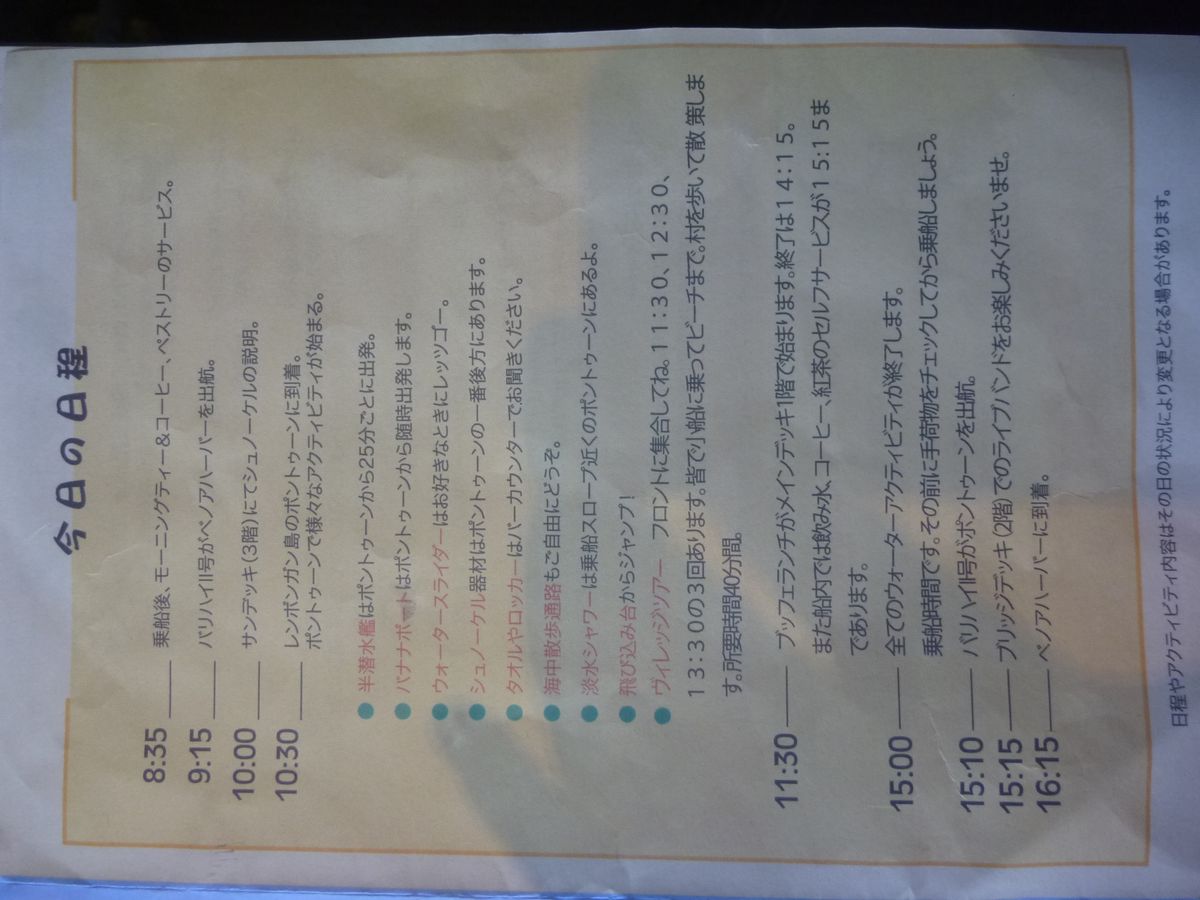 今日の日程
8:35 乗船後、モーニングティー＆コーヒー、ペストリーのサービス。
9:15 バリハイII号がベノアハーバーを出航。
10:00 サンデッキ（3階）にてシュノーケルの説明。
10:30 レンボンガン島のポントゥーンに到着。
ポントゥーンで様々なアクティビティが始まる。
● 半潜水艦はポントゥーンから25分ごとに出発。
● バナナボートはポントゥーンから随時出発します。
● ウォータースライダーはお好きなときにレッツゴー。
● シュノーケル器材はポントゥーンの一番後方にあります。
● タオルやロッカーはバーカウンターでお聞きください。
● 海中散歩通路もご自由にどうぞ。
● 淡水シャワーは乗船スロープ近くのポントゥーンにあるよ。
● 飛び込み台からジャンプ！
● ヴィレッジツアー　フロントに集合してね。11:30、12:30、
13:30の3回あります。皆で小船に乗ってビーチまで。村を歩いて散 策しま
す。所要時間40分間。
11:30 ブッフェランチがメインデッキ1階で始まります。終了は14:15。
また船内では飲み水、コーヒー、紅茶のセルフサービスが15:15ま
であります。
15:00 全てのウォーターアクティビティが終了します。
乗船時間です。その前に手荷物をチェックしてから乗船しましょう。
15:10 バリハイII号がポントゥーンを出航。
15:15 ブリッジデッキ（2階）でのライブバンドをお楽しみくださいませ。
16:15 ベノアハーバーに到着。
日程やアクティビティ内容はその日の状況により変更となる場合があります。